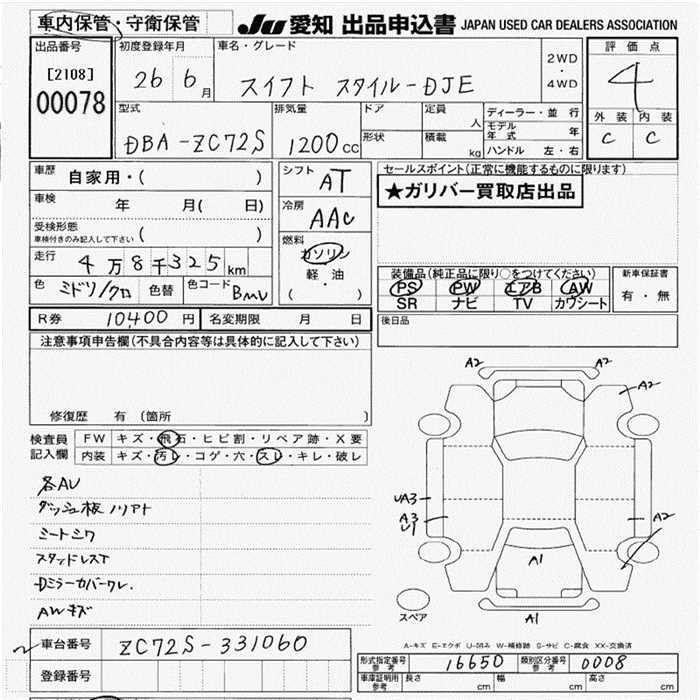 車内保管・守衛保管
JU 愛知 出品申込書 JAPAN USED CAR DEALERS ASSOCIATION
出品番号 初度登録年月 車名・グレード 評価点
[2108] 26 6月 スイフト スタイル-DJE 2WD・4WD 4
00078
型式 排気量 ドア 定員 人 ディーラー・並行 外装 内装
DBA-ZC72S 1200cc 形状 積載 kg モデル年式 年 C C
ハンドル 左・右
車歴 自家用・( ) シフト AT セールスポイント(正常に機能するものに限ります)
車検 年 月( 日) 冷房 AAC ★ガリバー買取店出品
受検形態 ( )
車検付きのみ記入して下さい
走行 4万8千325km 燃料 ガソリン・軽油 ( )
色 ミドリ/クロ 色替 色コード 装備品(純正品に限り○をつけてください) 新車保証書
PS PW エアB AW 有・無
SR ナビ TV カワシート
R券 10,400円 名変期限 月 日 後日品
注意事項申告欄(不具合内容等は具体的に記入して下さい)
修復歴 有 (箇所 )
検査員 FW キズ・飛石・ヒビ割・リペア跡・X要
記入欄 内装 キズ・汚レ・コゲ・穴・スレ・キレ・破レ
A2 A2 A2
各AU
ダッシュ板ノリアト
シートシワ
スタッドレスT
Dミラーカバーワレ.
AWキズ
UA3
A3 U1 A2
A1
スペア A1
A-キズ E-エクボ U-凹み W-補修跡 S-サビ C-腐食 XX-交換済
車台番号 ZC72S-331060
登録番号
形式指定番号 参考 16650 類別区分番号 参考 0008
車庫証明用 参考 長さ cm 幅 cm 高さ cm